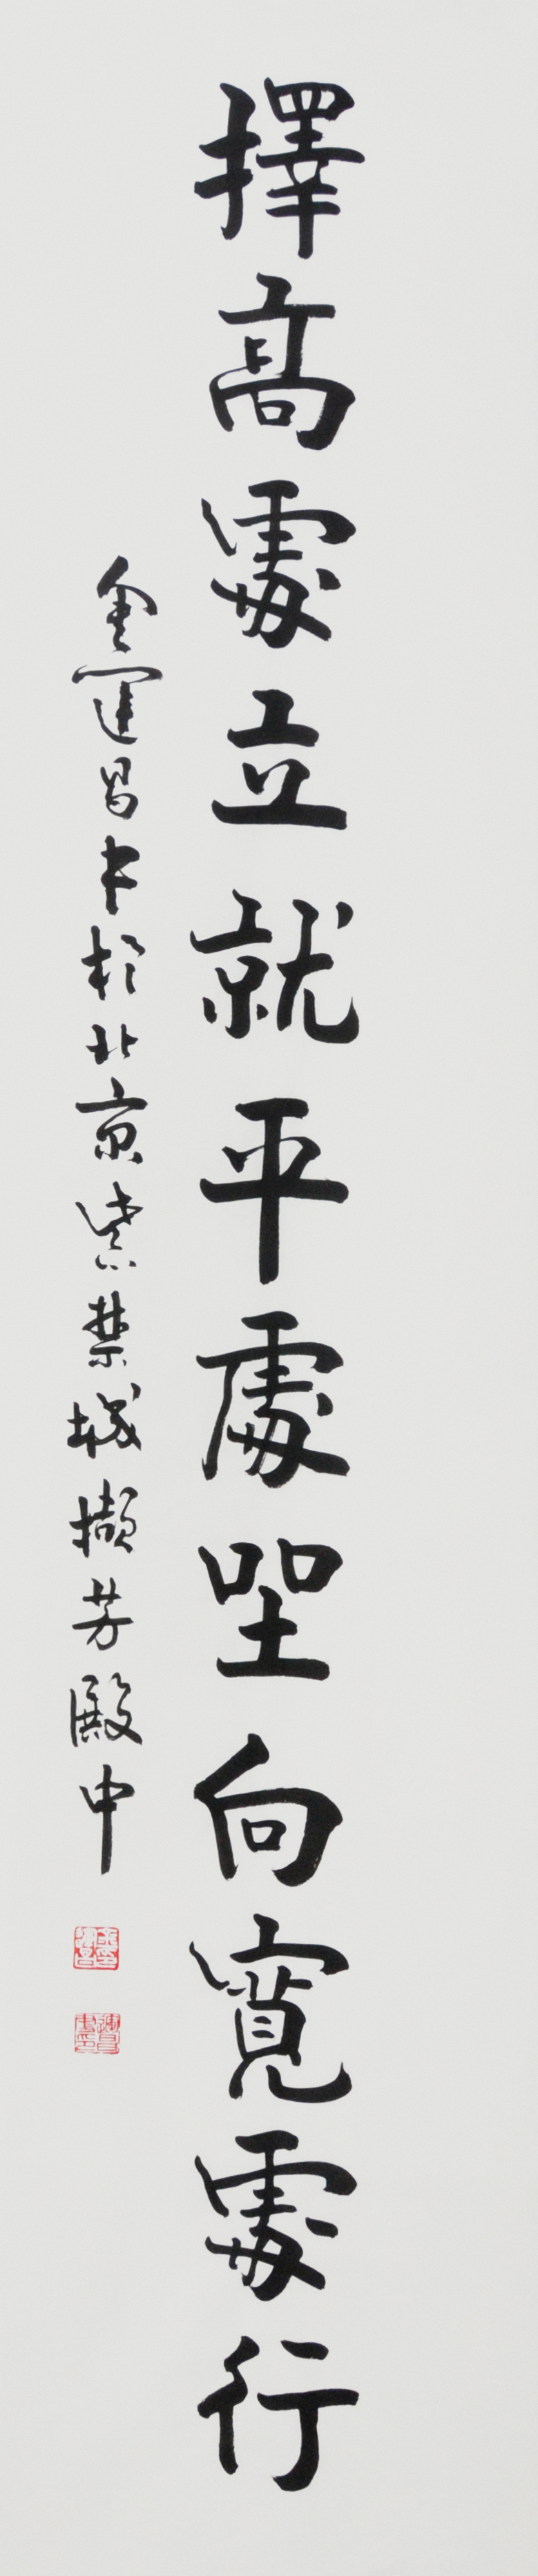 擇高處立就平處坐向寬處行
金運昌書於北京紫禁城擷芳殿中